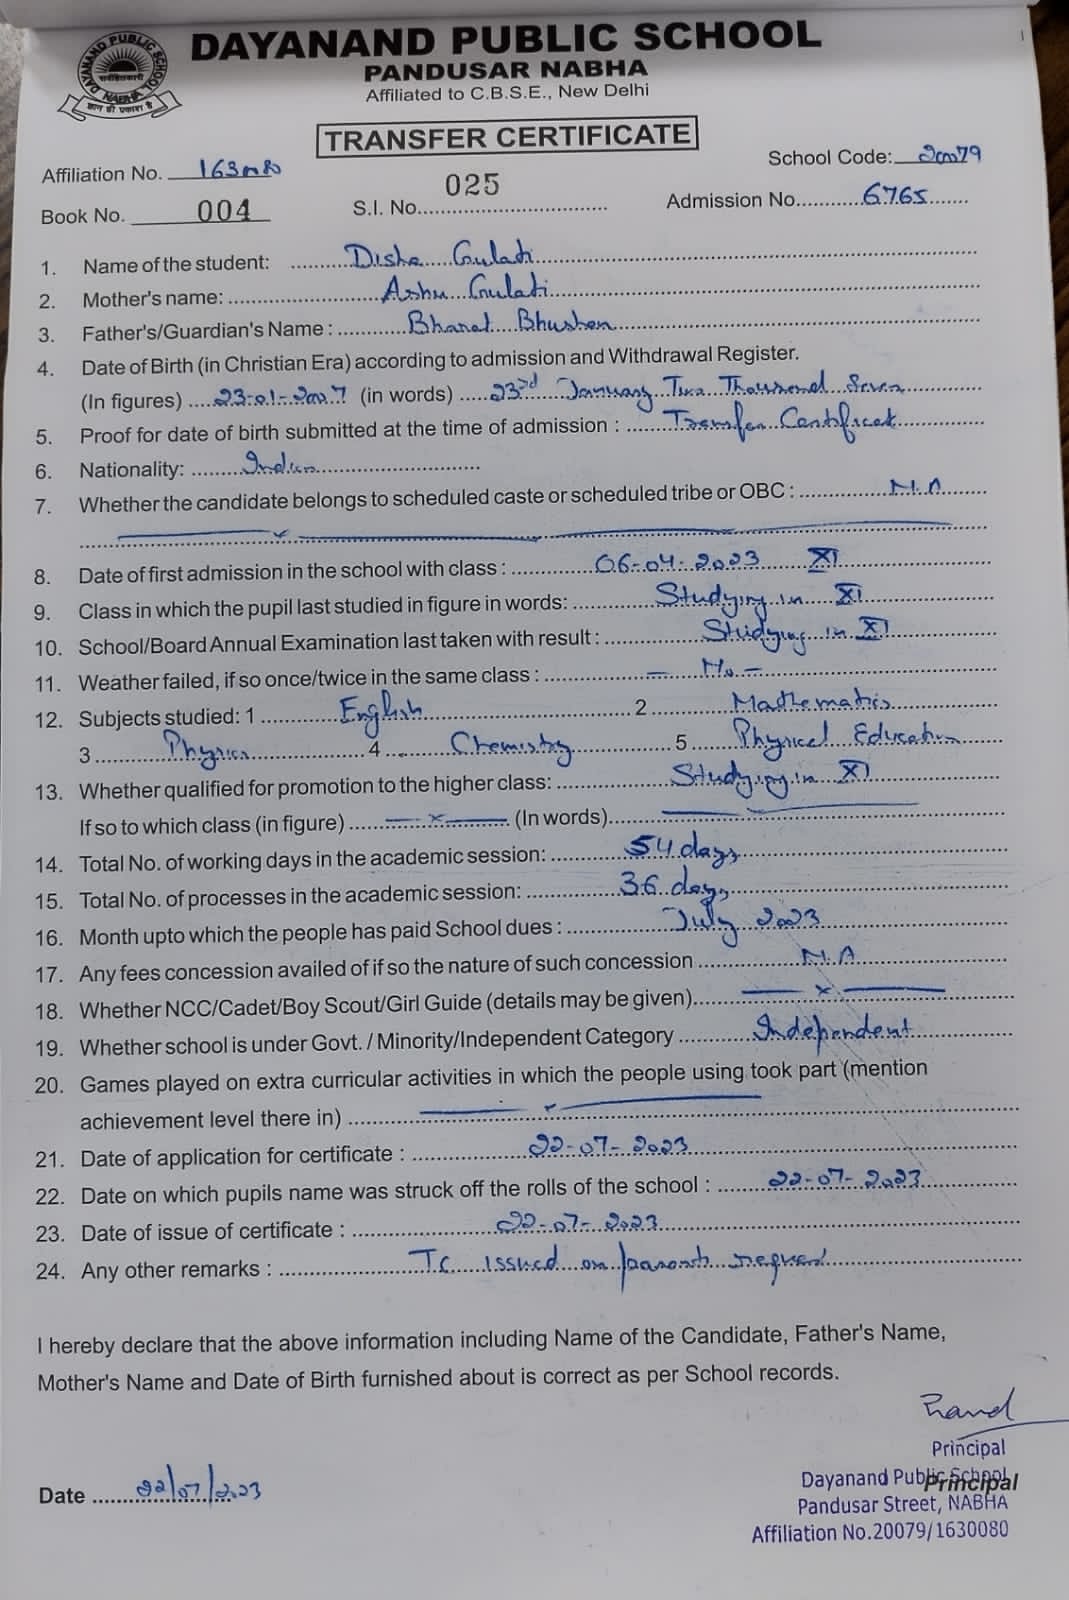 DAYANAND PUBLIC SCHOOL
PANDUSAR NABHA
Affiliated to C.B.S.E., New Delhi
DAYANAND PUBLIC SCHOOL
NABHA
TRANSFER CERTIFICATE
Affiliation No. 1630080
School Code: 20079
Book No. 004
S.I. No. 025
Admission No. 6765
1. Name of the student: Disha Gulati
2. Mother's name: Ashu Gulati
3. Father's/Guardian's Name : Bharat Bhushan
4. Date of Birth (in Christian Era) according to admission and Withdrawal Register.
(In figures) 23-01-2007 (in words) 23rd January Two Thousand Seven
5. Proof for date of birth submitted at the time of admission : Transfer Certificate
6. Nationality: Indian
7. Whether the candidate belongs to scheduled caste or scheduled tribe or OBC : N.A
8. Date of first admission in the school with class : 06-04-2023 XI
9. Class in which the pupil last studied in figure in words: Studying in XI
10. School/Board Annual Examination last taken with result : Studying in XI
11. Weather failed, if so once/twice in the same class : — No —
12. Subjects studied: 1 English 2 Mathematics
3 Physics 4 Chemistry 5 Physical Education
13. Whether qualified for promotion to the higher class: Studying in XI
If so to which class (in figure) —x— (In words)
14. Total No. of working days in the academic session: 54 days
15. Total No. of processes in the academic session: 36 days
16. Month upto which the people has paid School dues : July 2023
17. Any fees concession availed of if so the nature of such concession N.A
18. Whether NCC/Cadet/Boy Scout/Girl Guide (details may be given) —x—
19. Whether school is under Govt. / Minority/Independent Category Independent
20. Games played on extra curricular activities in which the people using took part (mention
achievement level there in)
21. Date of application for certificate : 22-07-2023
22. Date on which pupils name was struck off the rolls of the school : 22-07-2023
23. Date of issue of certificate : 22-07-2023
24. Any other remarks : TC issued on parents request
I hereby declare that the above information including Name of the Candidate, Father's Name,
Mother's Name and Date of Birth furnished about is correct as per School records.
Principal
Dayanand Public School
Principal
Pandusar Street, NABHA
Affiliation No.20079/1630080
Date 22/07/2023